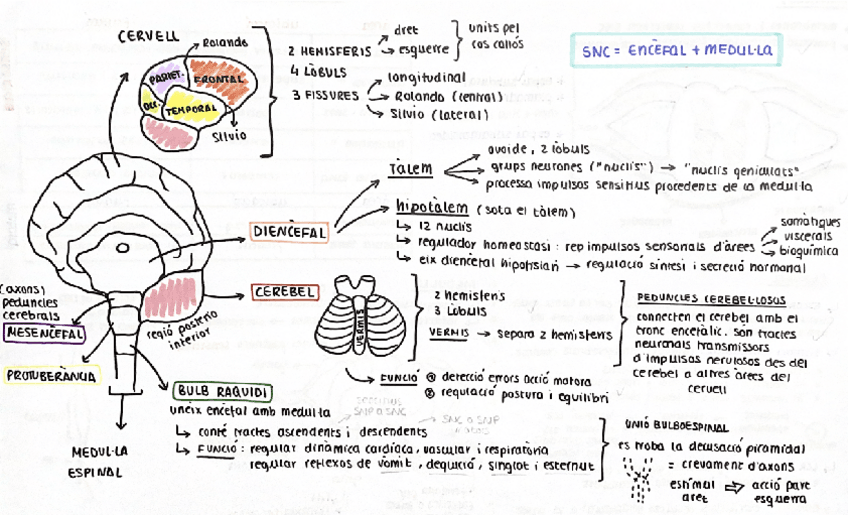 CERVELL
Rolando
PARIET.
FRONTAL
OCC.
TEMPORAL
Silvio
2 HEMISFERIS
dret
esquerre
units pel
cos callós
4 LÒBULS
3 FISSURES
longitudinal
Rolando (central)
Silvio (lateral)
SNC = ENCÈFAL + MEDUL·LA
TÀLEM
ovoide, 2 lòbuls
grups neurones ("nuclis") → "nuclis geniculats"
processa impulsos sensitius procedents de la medul·la
DIENCÈFAL
hipotàlem (sota el tàlem)
↳ 12 nuclis
↳ regulador homeostasi: rep impulsos sensorials d'àrees
somàtiques
viscerals
bioquímica
↳ eix diencefal hipofisiari → regulació síntesi i secreció hormonal
(axons)
peduncles
cerebrals
MESENCÈFAL
PROTUBERÀNCIA
regió posterio
inferior
CEREBEL
VERMIS
2 hemisferis
3 Lòbuls
VERMIS → separa 2 hemisferis
PEDUNCLES CEREBEL·LOSOS
connecten el cerebel amb el
tronc encefàlic. Són tractes
neuronals transmissors
d'impulsos nerviosos des del
cerebel a altres àrees del
cervell
FUNCIÓ
① detecció errors acció motora
② regulació postura i equilibri
BULB RAQUIDI
uneix encèfal amb medul·la
↳ conté tractes ascendents i descendents
↳ FUNCIÓ: regular dinàmica cardíaca, vascular i respiratòria
regular reflexos de vòmit, deglució, singlot i esternut
MEDUL·LA
ESPINAL
UNIÓ BULBOESPINAL
es troba la decusació piramidal
= creuament d'axons
estímul
dret
⇒ acció part
esquerra